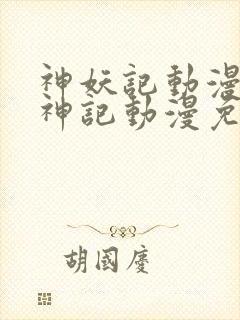 神妖記動漫
神記動漫免
胡國慶